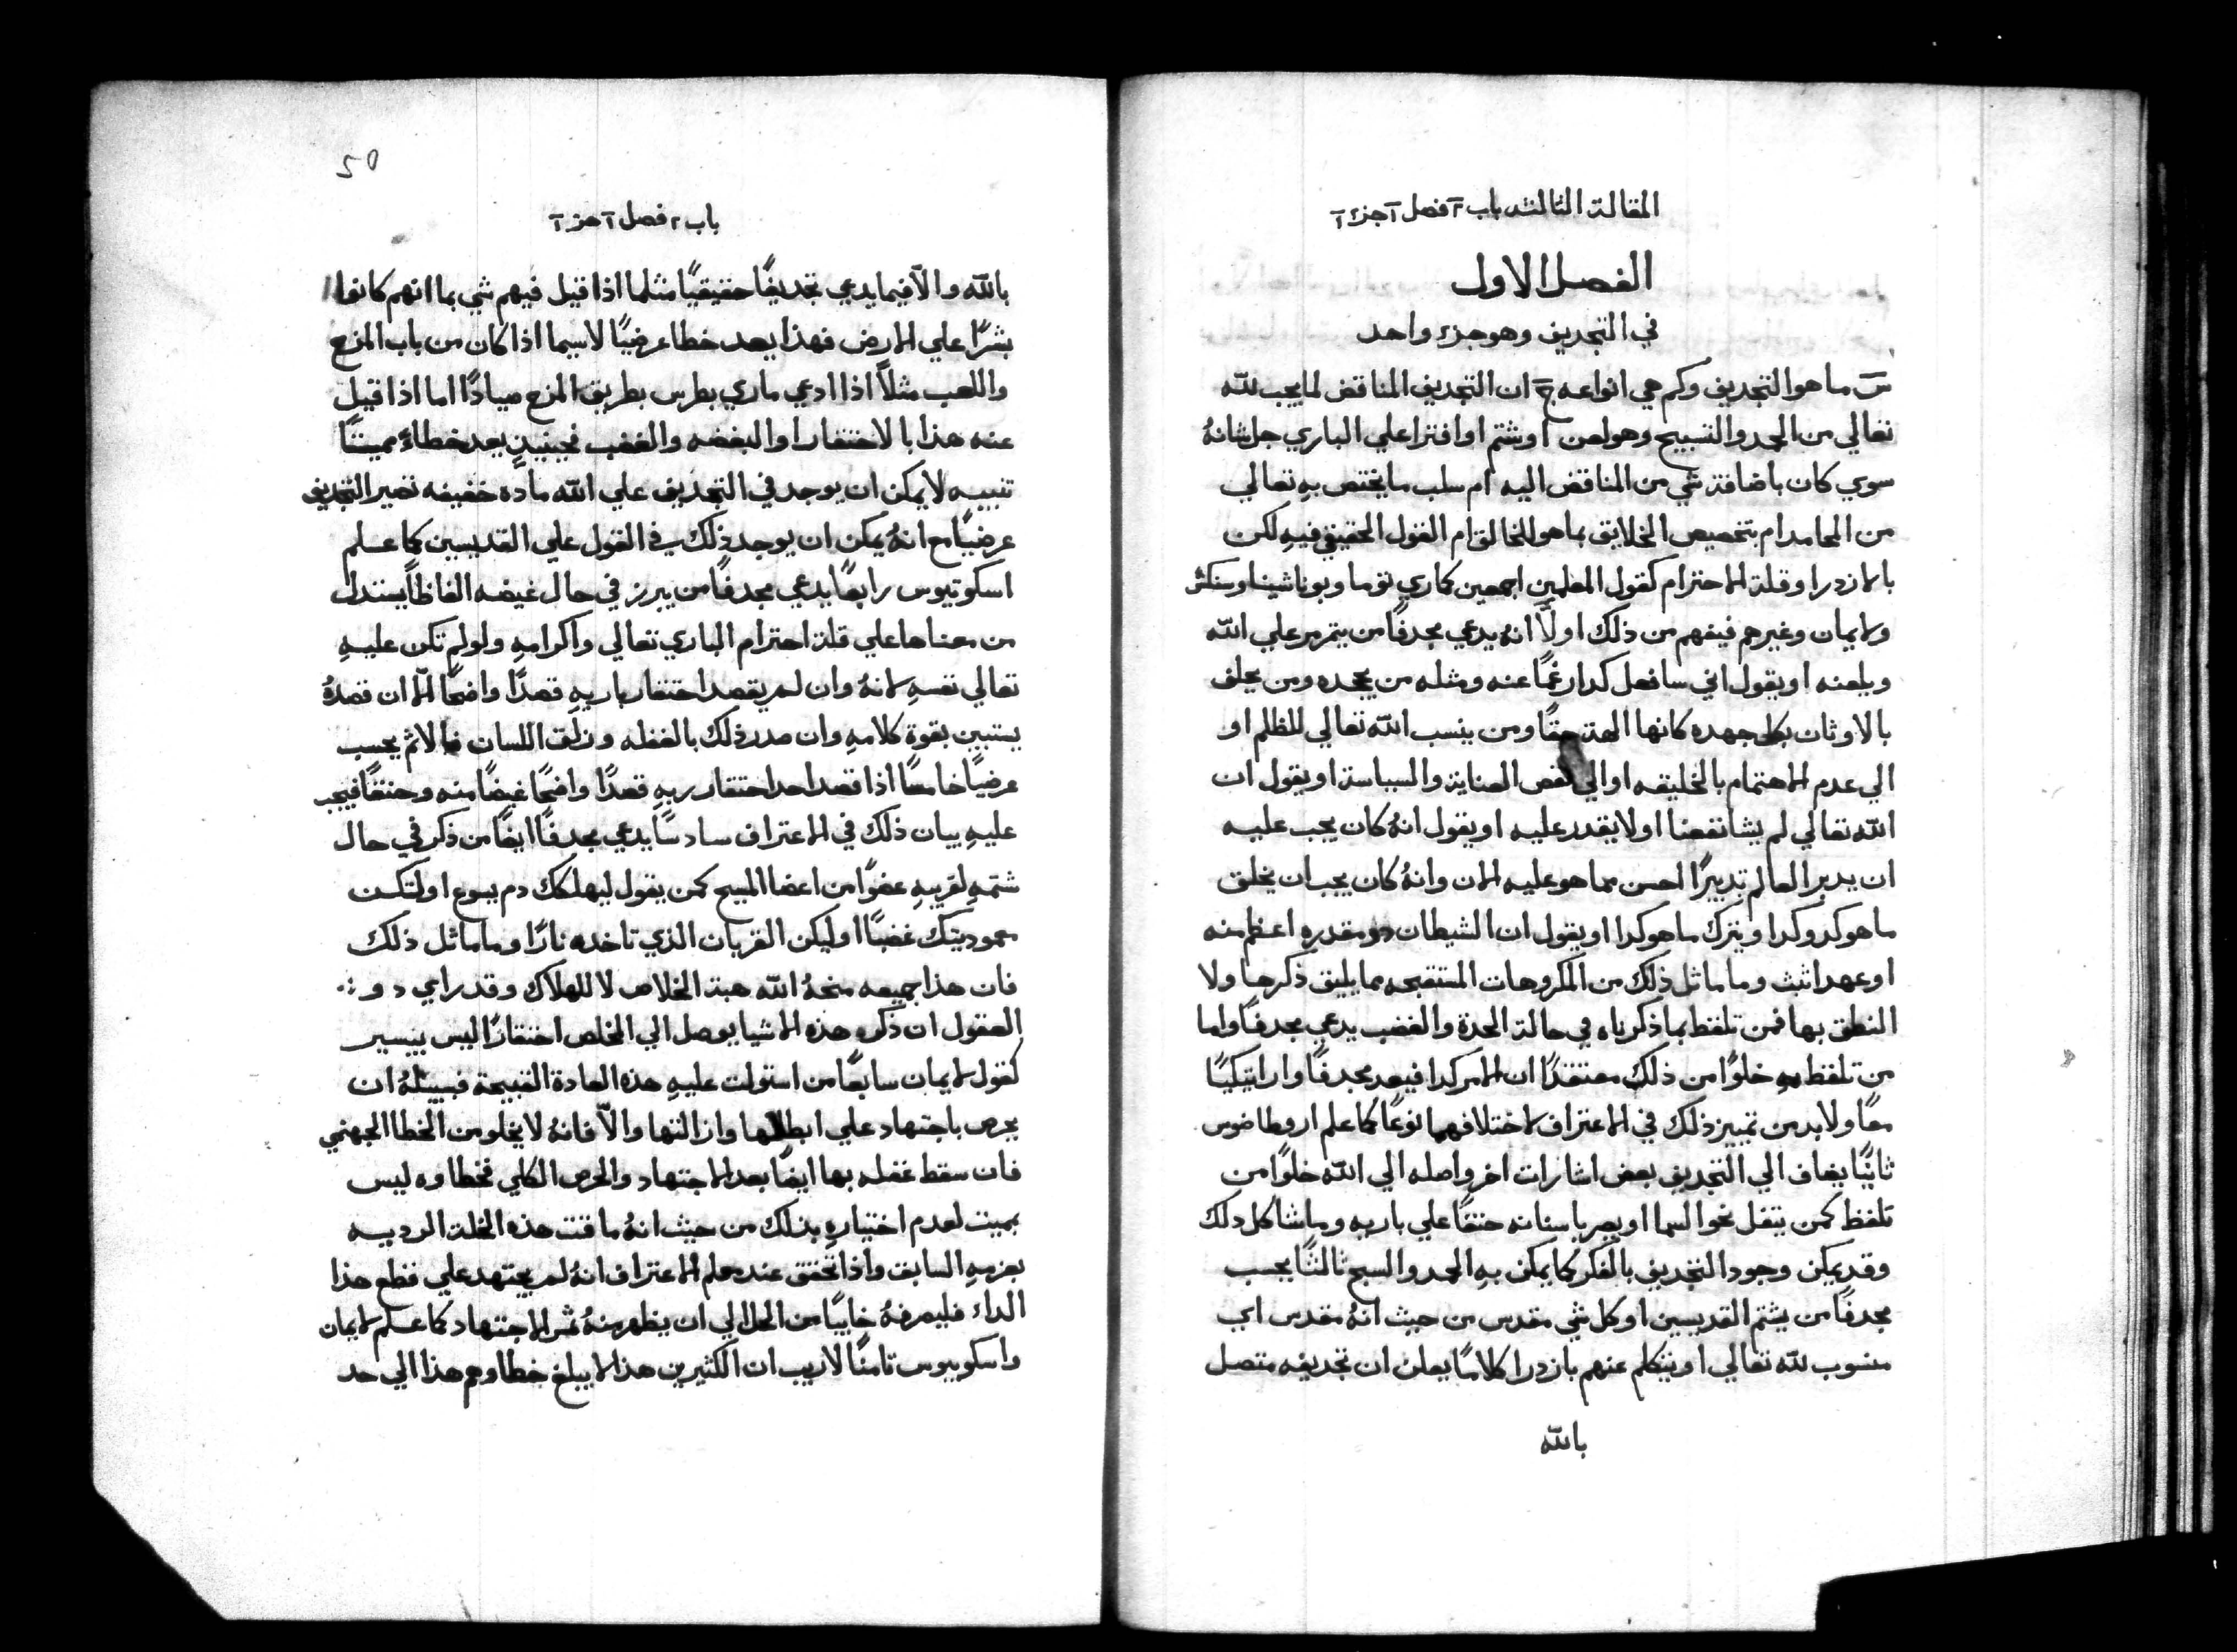 المقالة الثالثه باب ٢ فصل ١ جزء ١
الفصل الاول
في التجديف وهو جزء واحد
س ما هو التجديف وكم هي انواعه ج ان التجديف المناقض لما يجب لله
تعالي من الحمد والتسبيح وهو لعن او شتم او افترا علي الباري جل شانهُ
سوي كان باضافة شي من المناقض اليه ام سلب ما يختص بهِ تعالي
من المحامد ام بتخصيص الخلايق بما هو للخالق ام القول الحقيقي فيهِ لكن
بالازدرا وقلة الاحترام كقول المعلمين اجمعين كماري توما وبوناشينا وسنكش
ولايمان وغيرهم فيفهم من ذلك اولاً انهُ يدعي مجدفًا من يتمرمر علي الله
ويلعنه او يقول اني سافعل كدا رغمًا عنه ومثله من يجحده ومن يحلف
بالاوثان بكل جهده كانها الهة حقًا ومن ينسب الله تعالي للظلم او
الي عدم الاهتمام بالخليقه او الي نقص العناية والسياسة او يقول ان
الله تعالي لم يشا نفعنا او لا يقدر عليه او يقول انهُ كان يجب عليه
ان يدبر العالم تدبيرًا احسن مما هو عليه الان وانهُ كان يجب ان يخلق
ما هو كدا وكدا ويترك ما هو كدا او يقول ان الشيطان دو مقدره اعظم منه
او عهدا تبث وما ماثل ذلك من المكروهات المستقبحه مما يليق ذكرها ولا
النطق بها فمن تلفظ بما ذكرناه في حالة الحدة والغضب يدعي مجدفًا واما
من تلفظ به خلوًا من ذلك معتقدًا ان الامر كدا فيعد مجدفًا واراتيكيًا
معًا ولا بد من تمييز ذلك في الاعتراف لاختلافهما نوعًا كما علم اروطاضوس
ثانيًا يضاف الي التجديف بعض اشارات اخر واصله الي الله خلوًا من
تلفظ كمن يتفل نحو السما او يصر باسنانه حنقًا علي باريه وما شاكل دلك
وقد يمكن وجود التجديف بالفكر كما يمكن بهِ الحمد والسبح ثالثًا يحسب
مجدفًا من يشتم القديسين او كل شي مقدس من حيث انهُ مقدس اي
منسوب لله تعالي او يتكلم عنهم بازدرا كلامًا يعلن ان تجديفه متصل
بالله
باب ٢ فصل ١ جزء ١
بالله والاّ فيما يدعي تجديفًا حقيقيًا مثلما اذا قيل فيهم شي بما انهم كانوا
بشرًا علي الارض فهذا يعد خطا عرضيًا لاسيما اذا كان من باب المزح
واللعب مثلاً اذا ادعي ماري بطرس بطريق المزح صيادًا اما اذا قيل
عنه هذا بالاحتقار او البغضه والغضب فحينيذٍ يعد خطاءً مميتًا
تنبيه لا يمكن ان يوجد في التجديف علي الله مادة خفيفه تصير التجديف
عرضيًا مع انهُ يمكن ان يوجد ذلك في القول علي القديسين كما علم
اسكوتيوس رابعًا يدعي مجدفًا من يبرز في حال غيضه الفاظًا يستدل
من معناها علي قلة احترام الباري تعالي واكرامهِ ولو لم تكن عليهِ
تعالي نفسهِ لانهُ وان لم يقصد احتقار باريهِ قصدًا واضحًا الا ان قصدهُ
يستبين بقوة كلامهِ وان صدر ذلك بالغفله وزلق اللسان فالاثم يحسب
عرضيًا خامسًا اذا قصد احد احتقار ربهِ قصدًا واضحًا غيضًا منه وحنقًا فيجب
عليهِ بيان ذلك في الاعتراف سادسًا يدعي مجدفًا ايضًا من ذكر في حال
شتمهِ لقريبهِ عضوًا من اعضا المسيح كمن يقول ليهلكك دم يسوع او لتكن
معموديتك غضبًا او ليكن القربان الذي تاخده نارًا وما ماثل ذلك
فان هذا جميعه منحهُ الله هبة الخلاص لا للهلاك وقد راي دو
العقول ان ذكر هذه الاشيا يوصل الي المخلص احتقارًا ليس بيسير
كقول لايمان سابعًا من استولت عليهِ هذه العادة القبيحة فسبيلهُ ان
يحرص باجتهاد علي ابطالها وازالتها والاّ فانهُ لا يخلو من الخطا الجهنمي
فان سقط غفله بها ايضًا بعد الاجتهاد والحرص الكلي فخطاوه ليس
بمميت لعدم اختيارهِ بذلك من حيث انهُ ماقت هذه الخلة الرديه
بعزمهِ السابق واذا تحقق عند معلم الاعتراف انهُ لم يجتهد علي قطع هذا
الداء فليصرفهُ خايبًا من الحل الي ان يظهر منهُ ثمر الاجتهاد كما علم لايمان
واسكوبيوس ثامنًا لا ريب ان الكثيرين هذا لا يبلغ خطاوهم هذا الي حد